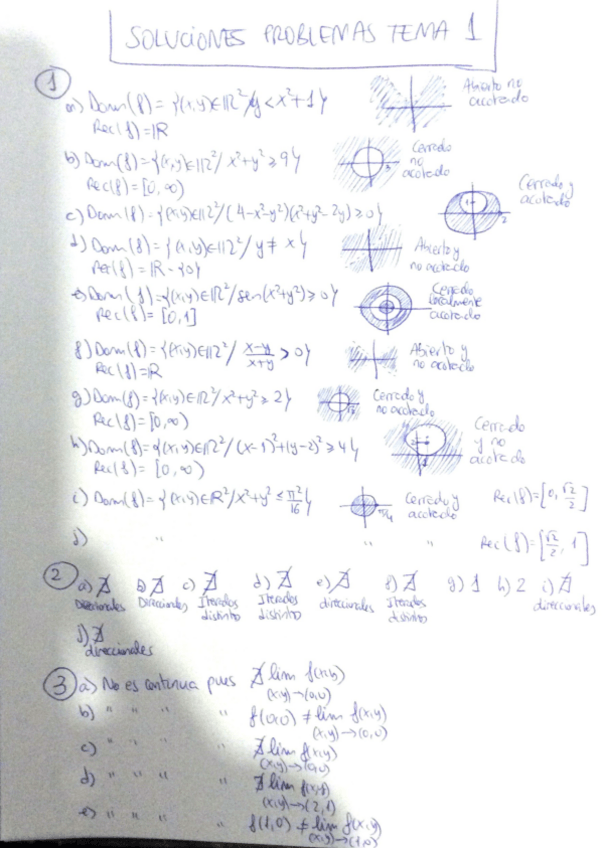 SOLUCIONES PROBLEMAS TEMA 1
1
a) Dom(f) = {(x,y)∈ℝ²/y < x²+1} Abierto no acotado
Rec(f) = ℝ
b) Dom(f) = {(x,y)∈ℝ²/ x²+y² ≥ 9} Cerrado no acotado
Rec(f) = [0,∞)
c) Dom(f) = {(x,y)∈ℝ²/(4-x²-y²)(x²+y²-2y) ≥ 0} Cerrado y acotado
d) Dom(f) = {(x,y)∈ℝ²/ y ≠ x} Abierto y no acotado
Rec(f) = ℝ - {0}
e) Dom(f) = {(x,y)∈ℝ²/sen(x²+y²) ≥ 0} Cerrado acotado
Rec(f) = [0,1]
f) Dom(f) = {(x,y)∈ℝ²/ x-y/x+y > 0} Abierto y no acotado
Rec(f) = ℝ
g) Dom(f) = {(x,y)∈ℝ²/x²+y² ≥ 2} Cerrado y no acotado
Rec(f) = [0,∞)
h) Dom(f) = {(x,y)∈ℝ²/(x-1)²+(y-2)² ≥ 4} Cerrado y no acotado
Rec(f) = [0,∞)
i) Dom(f) = {(x,y)∈ℝ²/x²+y² ≤ π²/16} π/4 Cerrado y acotado Rec(f) = [0, √2/2]
j) " " " Rec(f) = [√2/2, 1]
2 a) ∄ b) ∄ c) ∄ d) ∄ e) ∄ f) ∄ g) 1 h) 2 i) ∄
Direccionales Direccionales Iterados distinto Iterados distinto direccionales Iterados distinto direccionales
j) ∄
direccionales
3 a) No es continua pues ∄ lim f(x,y)
(x,y)→(0,0)
b) " " " " f(0,0) ≠ lim f(x,y)
(x,y)→(0,0)
c) " " " " ∄ lim f(x,y)
(x,y)→(0,0)
d) " " " " ∄ lim f(x,y)
(x,y)→(2,1)
e) " " " " f(1,0) ≠ lim f(x,y)
(x,y)→(1,0)